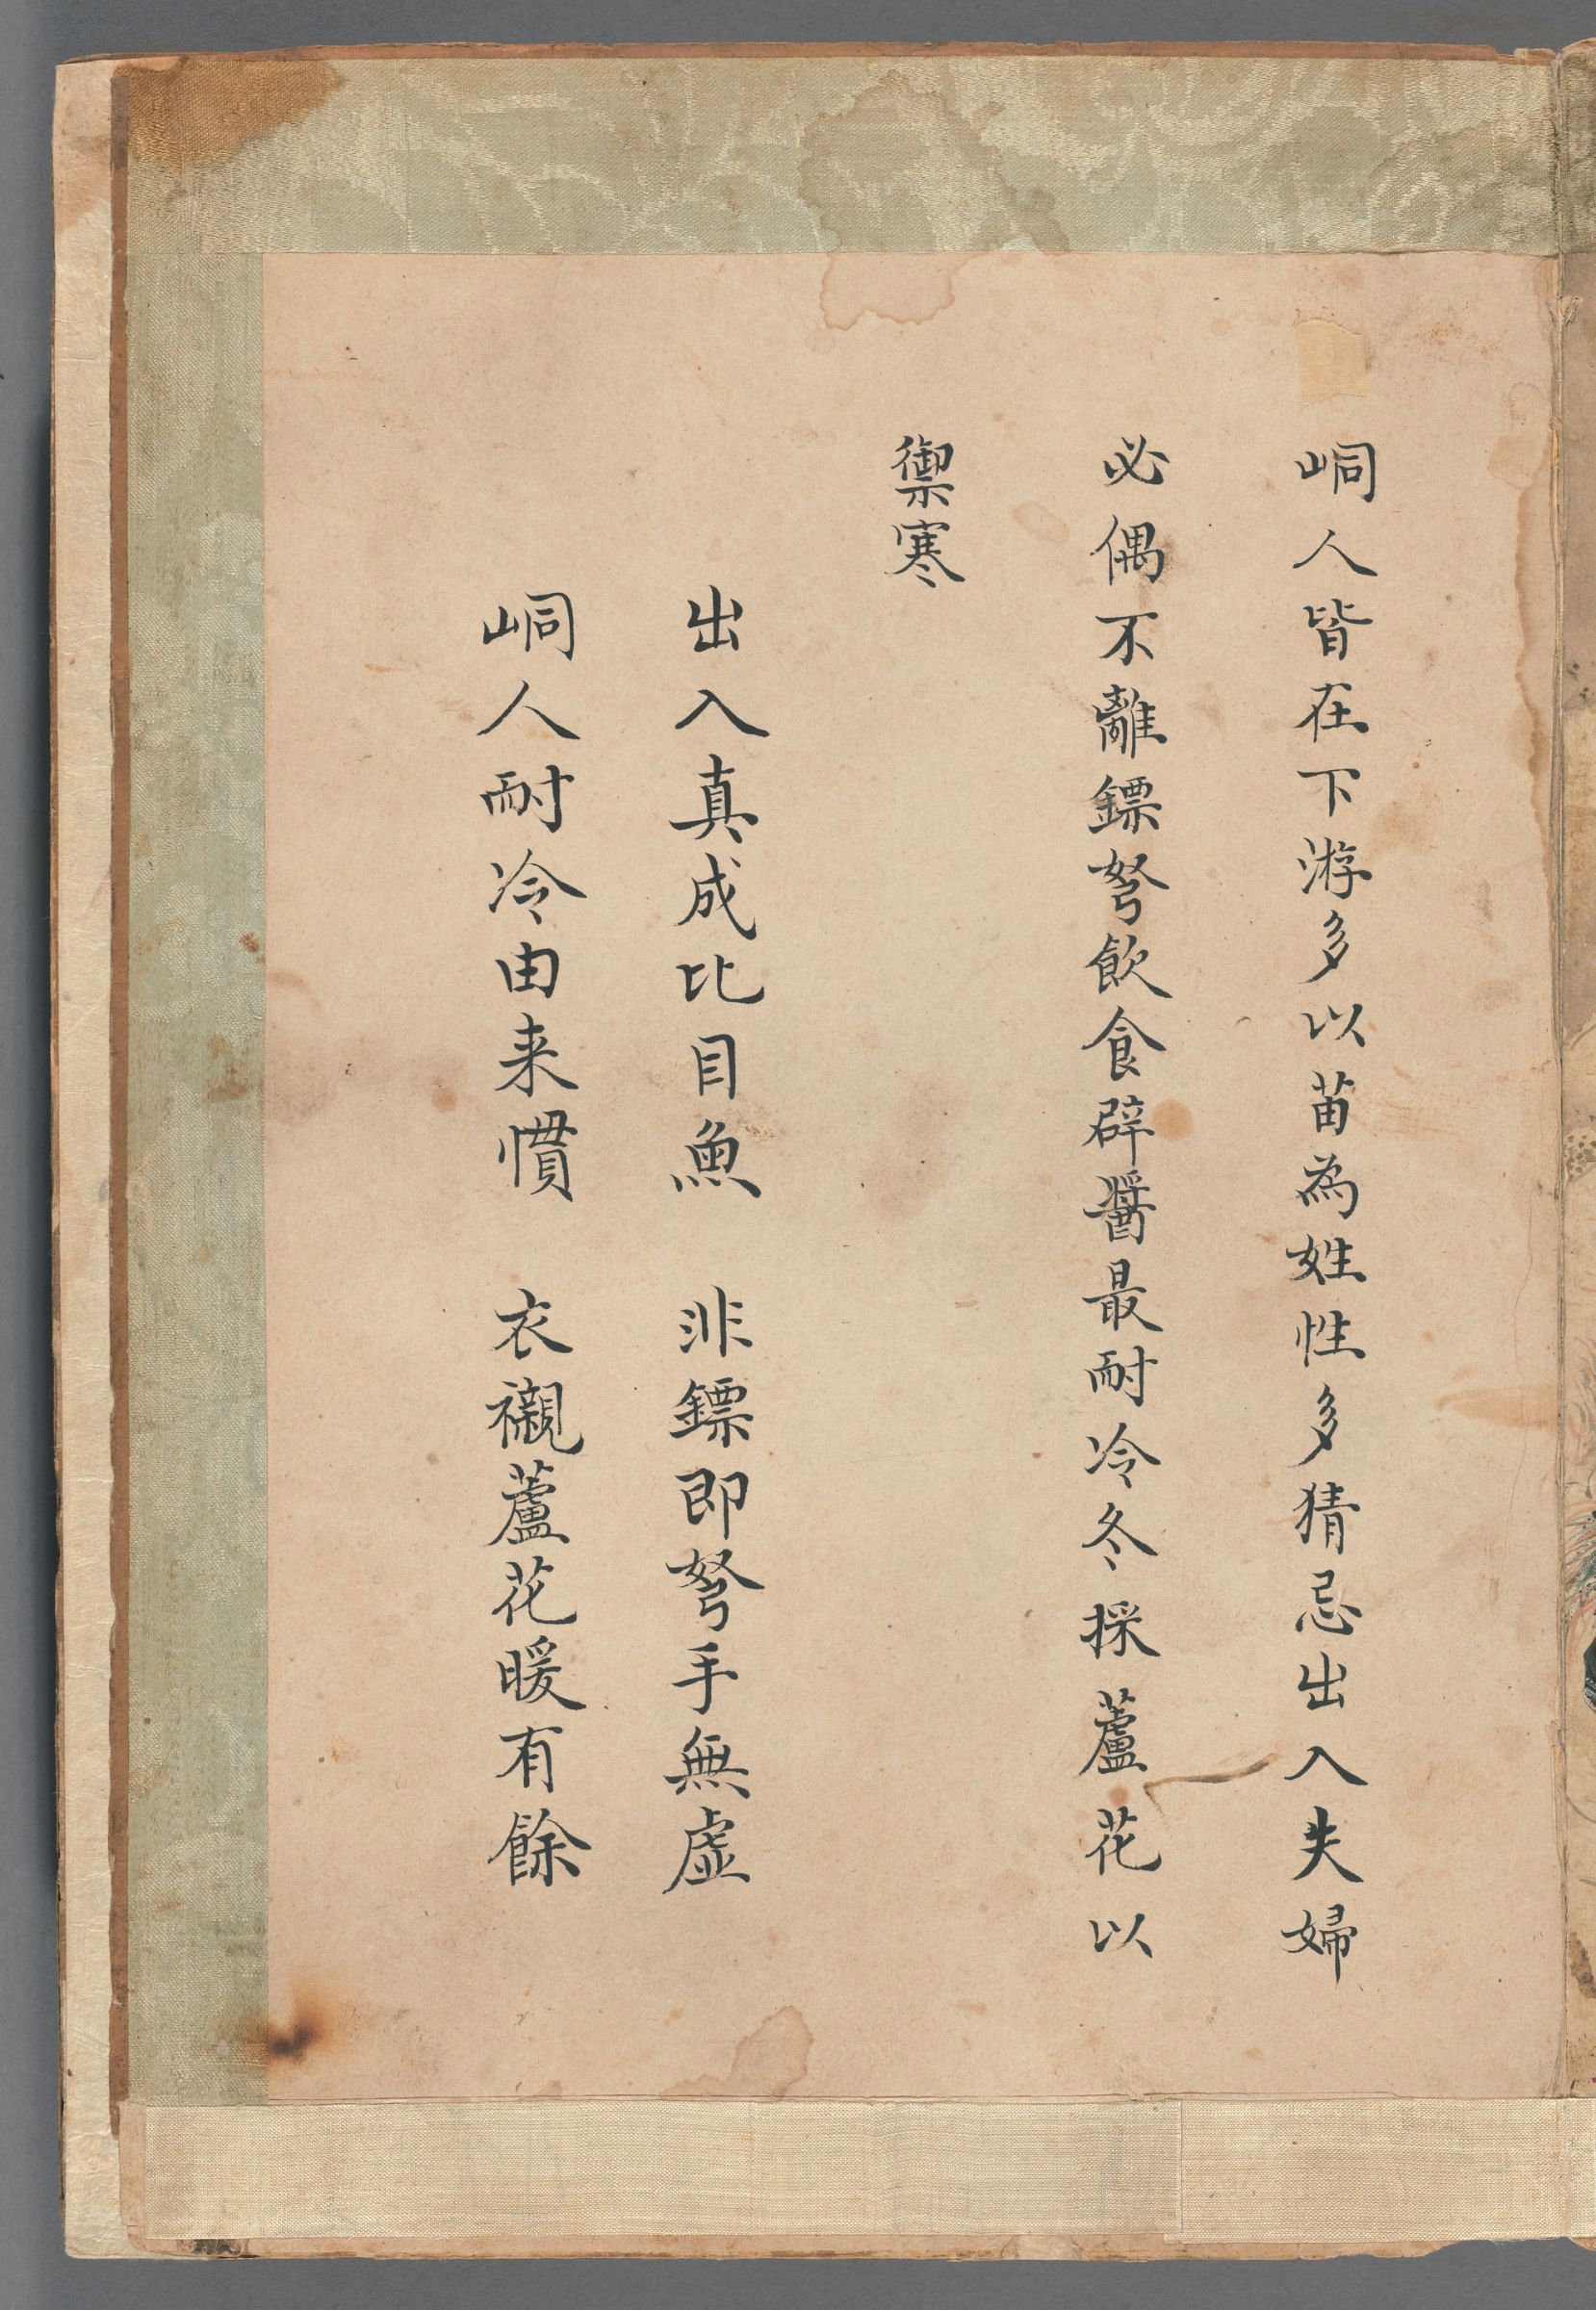 峒人皆在下游多以苗為姓性多猜忌出入夫婦
必偶不離鏢弩飲食辟醬最耐冷冬採蘆花以
禦寒
出入真成比目魚　非鏢即弩手無虛
峒人耐冷由来慣　衣襯蘆花暖有餘